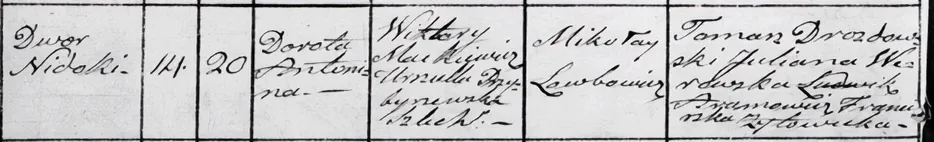 Dwor
Nidoki-
14.
20
Dorota
Antoni=
na.—
Wiktory
Mackiewicz
Urszula Przy=
byszewska
Szlach.—
Mikołay
Lawbowicz
Taman Drozdow=
ski Juliana We=
rowska Ludwik
Abramowicz Franci=
szka Zytowiecka-